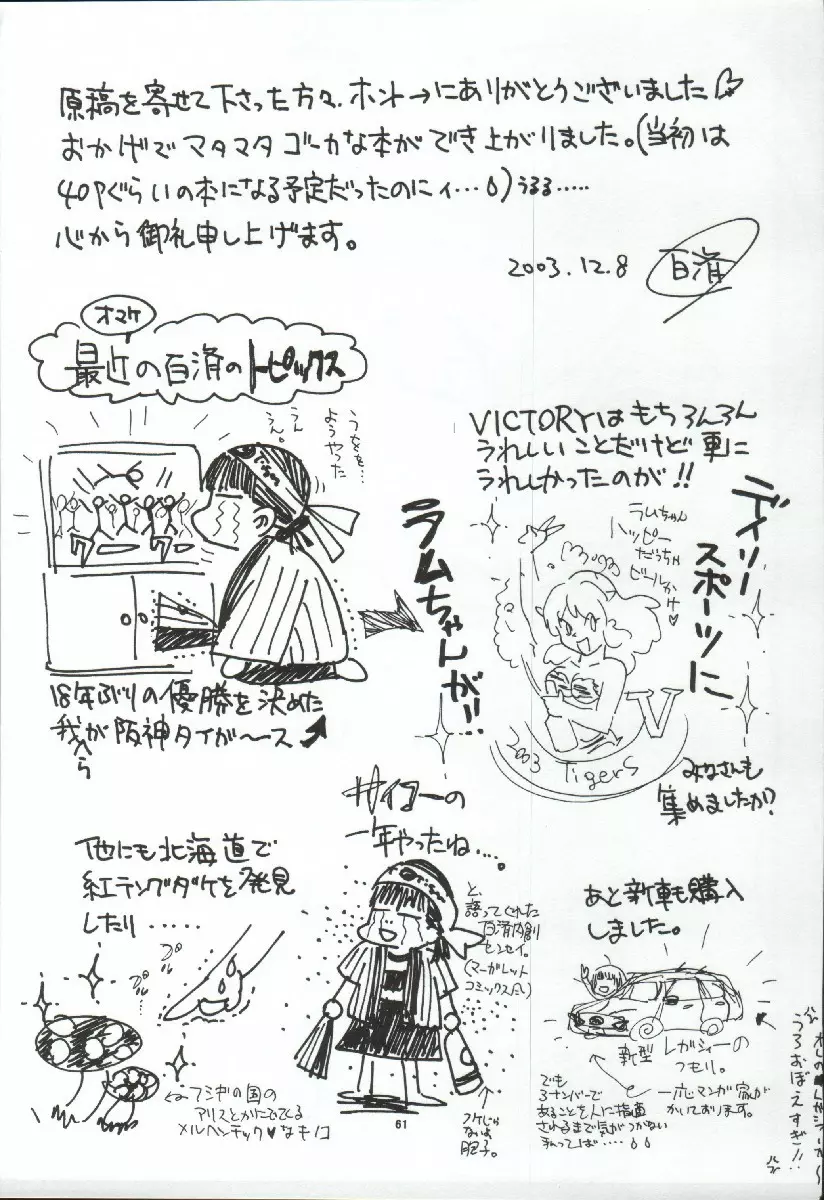 原稿を寄せて下さった方々、ホントーにありがとうございました
おかげでマタマタゴーカな本ができ上がりました。(当初は
40Pぐらいの本になる予定だったのにィ…)うるる……
心から御礼申し上げます。
2003.12.8 百済
オマケ
最近の百済のトピックス
うっうっ…
ようやった
うん
え。
18年ぶりの優勝を決めた
我らが阪神タイガ〜ス
VICTORYはもちろんろん
うれしいことだけど更に
うれしかったのが!!
デイリー
スポーツに
ラムちゃんが!!
ラムちゃん
ハッピー
だっちゃ
ビールかけ♥
V
2003 Tigers
みなさんも
集めましたか?
サイコーの
一年やったね…。
と、
語ってくれた
百済内創
センセイ。
(マーガレット
コミックスだし)
フケじゃ
ないよ
胆子。
他にも北海道で
紅テングダケを発見
したり……
プル
プル
フシギの国の
アリスとかにでてくる
メルヘンチック♥なキノコ
あと新車も購入
しました。
新型レガシーの
つもり。
一応マンガ家が
かいております。
でも
3ナンバーで
あることを人に指摘
されるまで気がつかない
私ってば……
うろおぼえすぎ!!
61